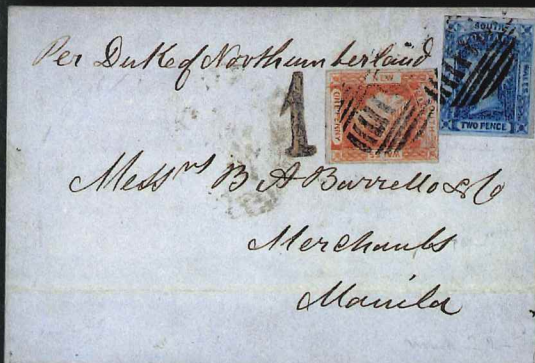 Per Duke of Northumberland
1
SOUTH
WALES
TWO PENCE
Messrs B A Barretto & Co
Merchants
Manila